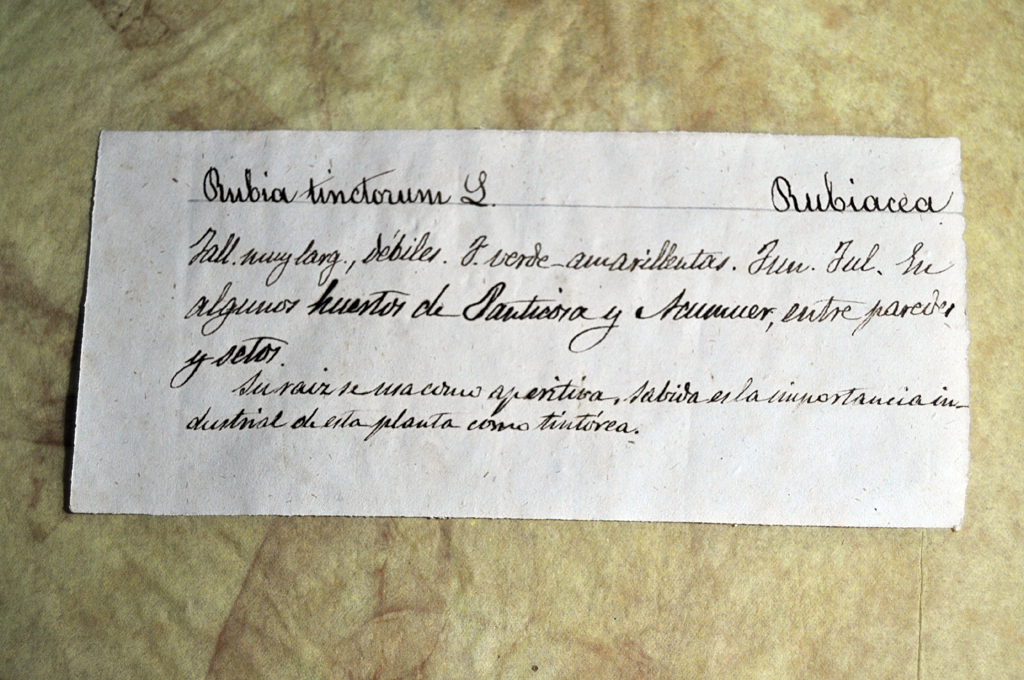 Rubia tinctorum L. Rubiacea
Tall. muy larg., débiles. F. verde-amarillentas. Jun. Jul. En
algunos huertos de Panticosa y Acumuer, entre paredes
y setos.
Su raiz se usa como aperitiva, sabida es la importancia in-
dustrial de esta planta como tintórea.